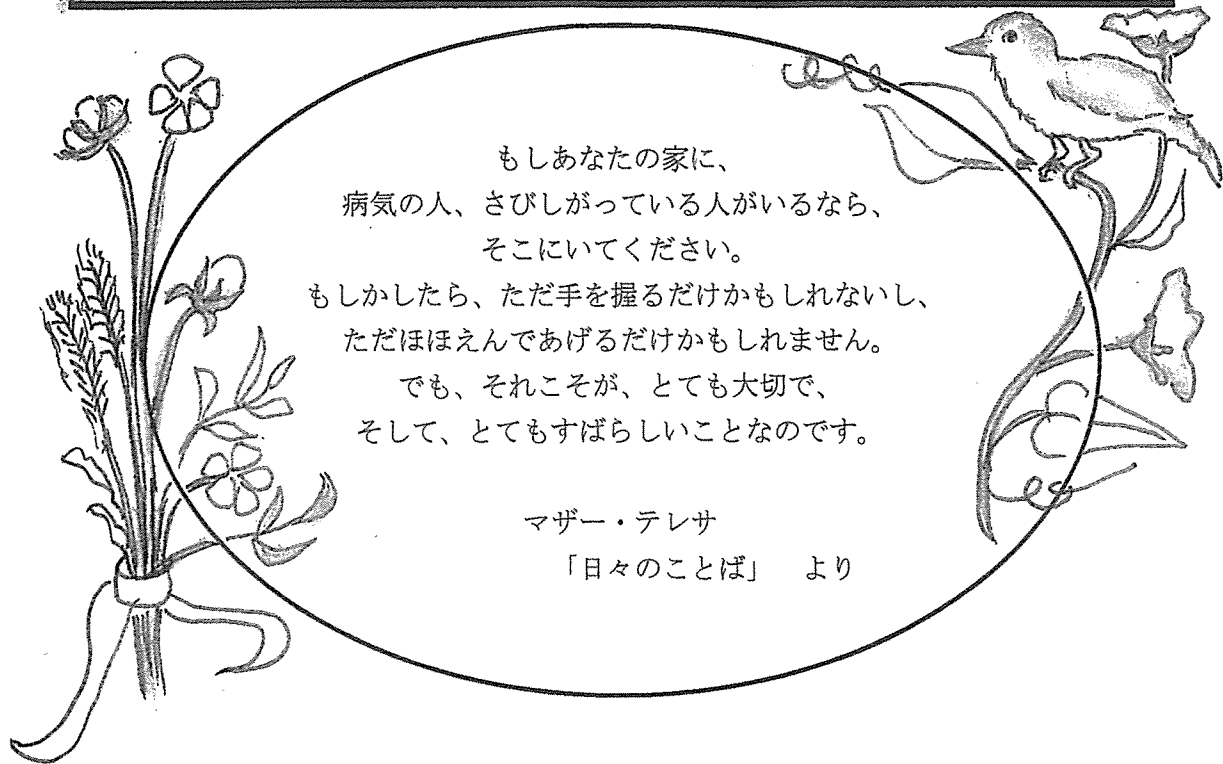 もしあなたの家に、
病気の人、さびしがっている人がいるなら、
そこにいてください。
もしかしたら、ただ手を握るだけかもしれないし、
ただほほえんであげるだけかもしれません。
でも、それこそが、とても大切で、
そして、とてもすばらしいことなのです。
マザー・テレサ
「日々のことば」　より